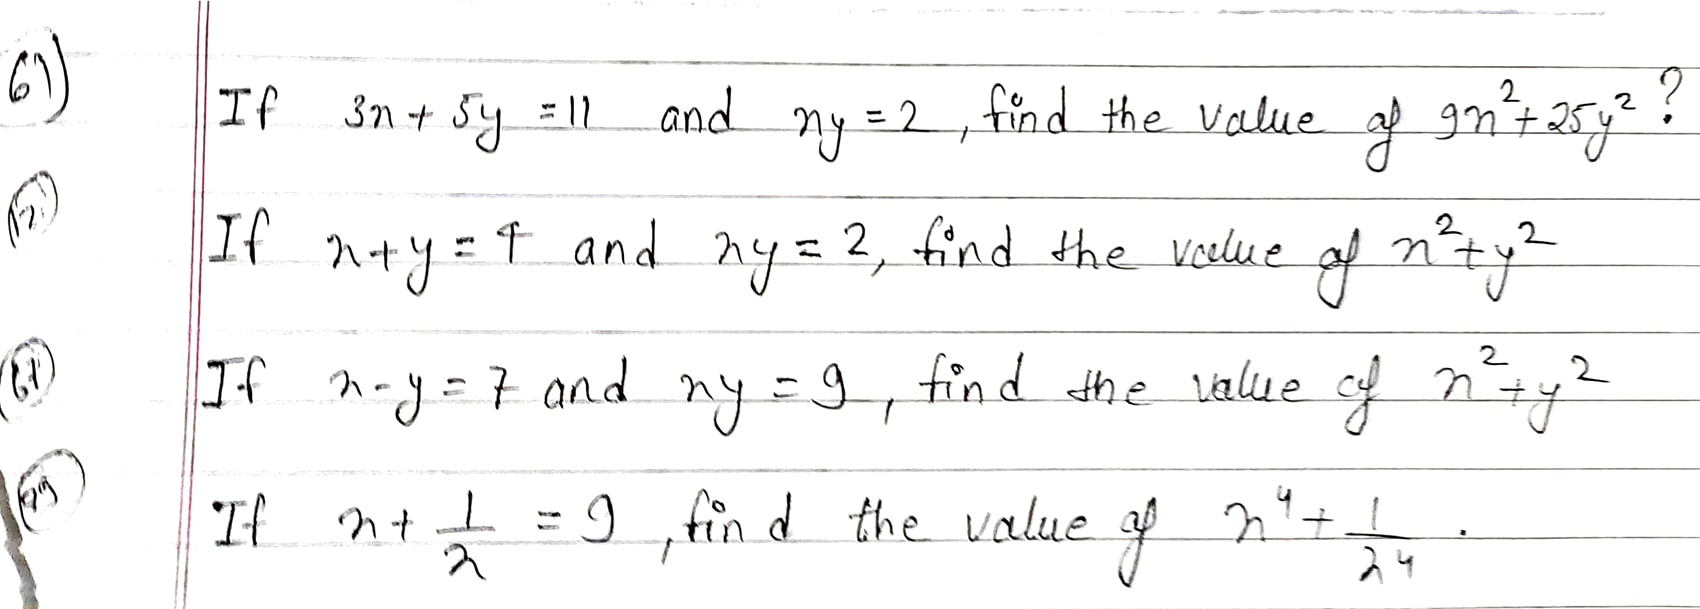 61) If 3x + 5y = 11 and xy = 2, find the value of 9x² + 25y² ?
If x + y = 4 and xy = 2, find the value of x² + y²
If x - y = 7 and xy = 9, find the value of x² + y²
If x + 1/x = 9, find the value of x⁴ + 1/x⁴.